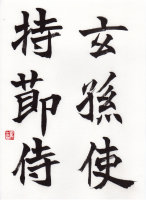 玄孫使
持節侍